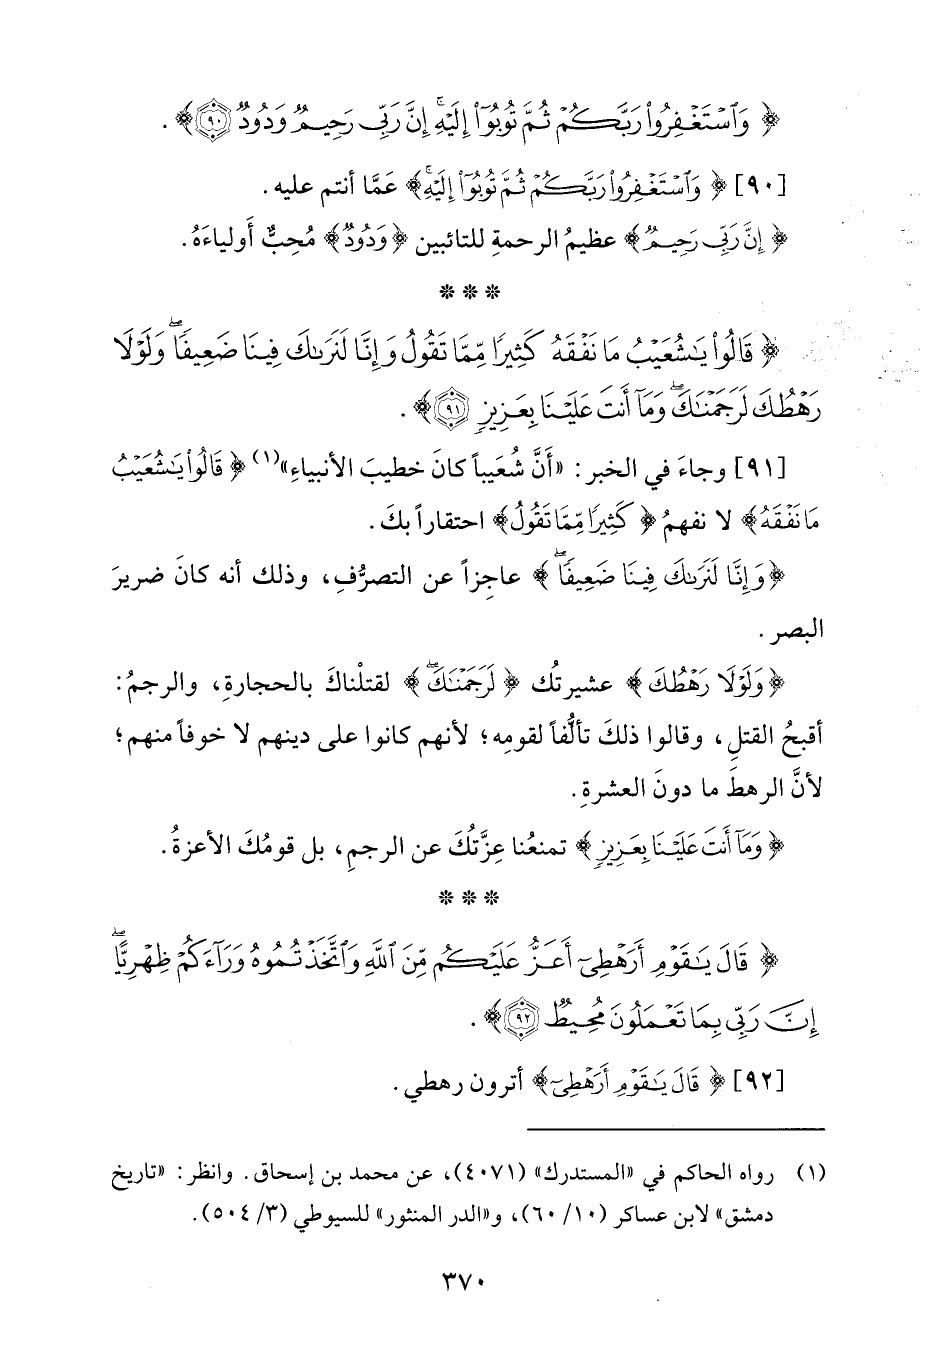 ﴿ وَٱسْتَغْفِرُوا۟ رَبَّكُمْ ثُمَّ تُوبُوٓا۟ إِلَيْهِ ۚ إِنَّ رَبِّى رَحِيمٌ وَدُودٌ ٩٠ ﴾ .
[٩٠] ﴿ وَٱسْتَغْفِرُوا۟ رَبَّكُمْ ثُمَّ تُوبُوٓا۟ إِلَيْهِ ۚ﴾ عَمَّا أنتم عليه.
﴿ إِنَّ رَبِّى رَحِيمٌ ﴾ عظيمُ الرحمةِ للتائبين ﴿وَدُودٌ﴾ مُحِبٌّ أَولياءَهُ.
* * *
﴿ قَالُوا۟ يَـٰشُعَيْبُ مَا نَفْقَهُ كَثِيرًا مِّمَّا تَقُولُ وَإِنَّا لَنَرَىٰكَ فِينَا ضَعِيفًا ۖ وَلَوْلَا
رَهْطُكَ لَرَجَمْنَـٰكَ ۖ وَمَآ أَنتَ عَلَيْنَا بِعَزِيزٍ ٩١ ﴾ .
[٩١] وجاءَ في الخبر: «أَنَّ شُعَيباً كانَ خطيبَ الأنبياءِ»(١) ﴿ قَالُوا۟ يَـٰشُعَيْبُ
مَا نَفْقَهُ ﴾ لا نفهمُ ﴿ كَثِيرًا مِّمَّا تَقُولُ ﴾ احتقاراً بكَ.
﴿وَإِنَّا لَنَرَىٰكَ فِينَا ضَعِيفًا ۖ ﴾ عاجِزاً عن التصرُّفِ، وذلك أنه كانَ ضريرَ
البصر.
﴿وَلَوْلَا رَهْطُكَ ﴾ عشيرتُك ﴿ لَرَجَمْنَـٰكَ ۖ ﴾ لقتلْناكَ بالحجارةِ، والرجمُ:
أقبحُ القتلِ، وقالوا ذلكَ تألُّفاً لقومِه؛ لأنهم كانوا على دينهم لا خوفاً منهم؛
لأنَّ الرهطَ ما دونَ العشرةِ.
﴿وَمَآ أَنتَ عَلَيْنَا بِعَزِيزٍ ﴾ تمنعُنا عِزَّتُكَ عن الرجمِ، بل قومُكَ الأعزةُ.
* * *
﴿ قَالَ يَـٰقَوْمِ أَرَهْطِىٓ أَعَزُّ عَلَيْكُم مِّنَ ٱللَّهِ وَٱتَّخَذْتُمُوهُ وَرَآءَكُمْ ظِهْرِيًّا ۖ
إِنَّ رَبِّى بِمَا تَعْمَلُونَ مُحِيطٌ ٩٢ ﴾ .
[٩٢] ﴿ قَالَ يَـٰقَوْمِ أَرَهْطِىٓ ﴾ أترون رهطي.
(١) رواه الحاكم في «المستدرك» (٤٠٧١)، عن محمد بن إسحاق. وانظر: «تاريخ
دمشق» لابن عساكر (١٠/ ٦٠)، و«الدر المنثور» للسيوطي (٣/ ٥٠٤).
٣٧٠